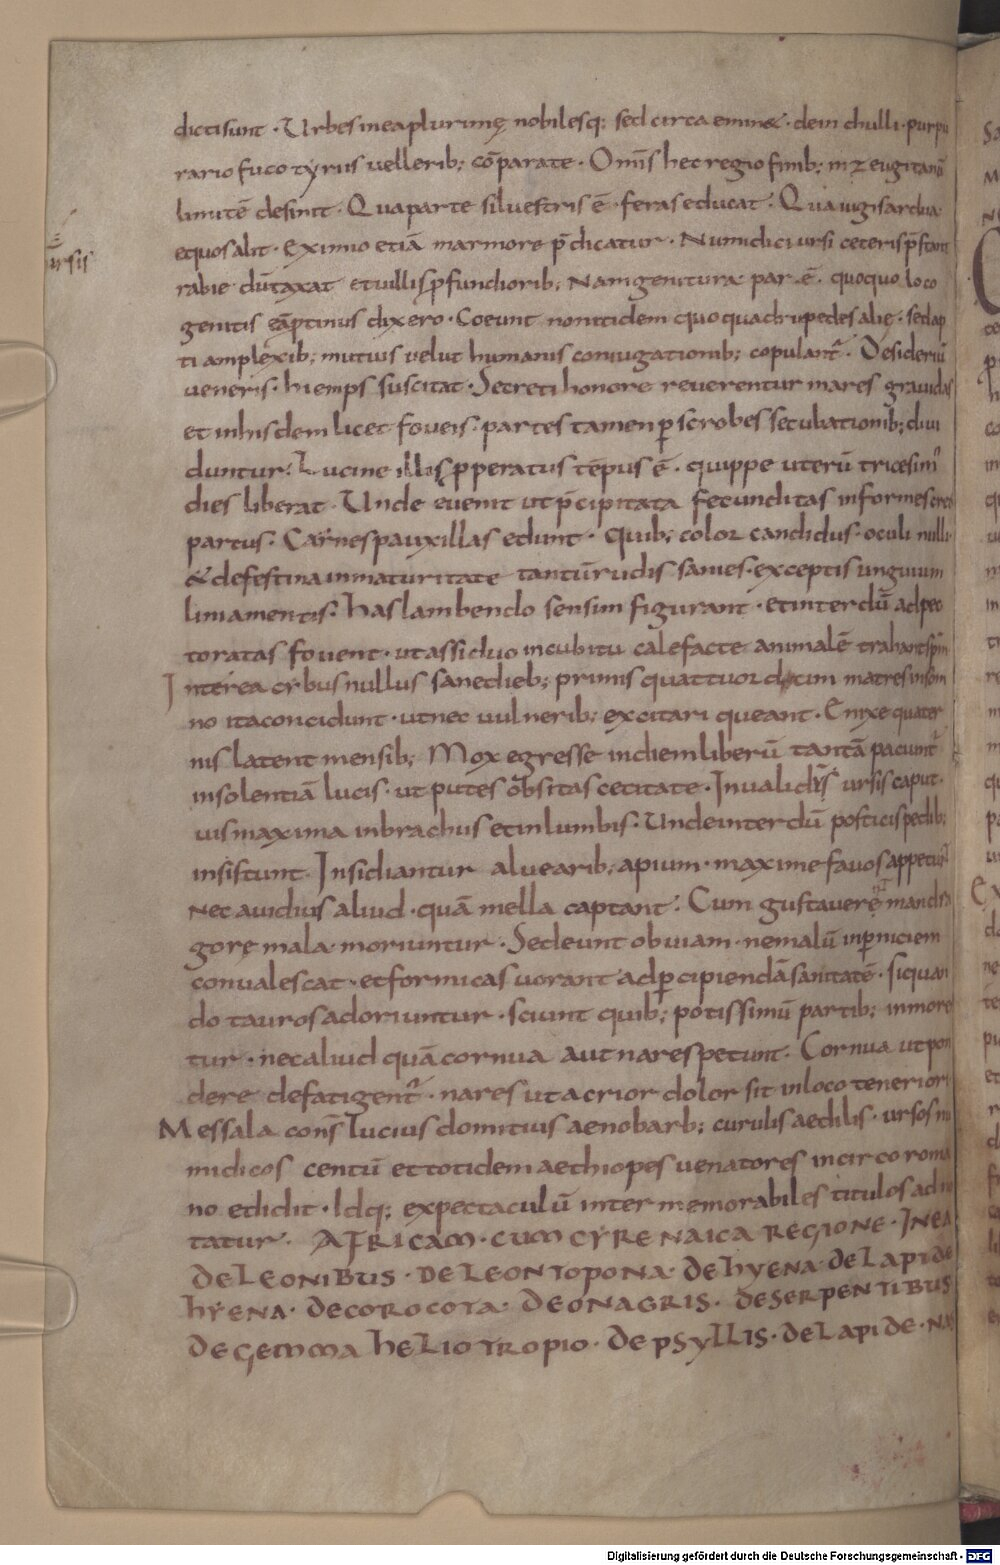 dicti sunt · Urbes in ea plurimę nobilesq; sed cirta emin& · dein chulli · purpu
rario fuco tyriis uellerib; cōparate · Omīs hec regio finib; in zeugitanū
limitē desinit · Qua parte siluestris ē · feras educat · Qua iugis ardua
equos alit · Eximio etiā marmore p̄dicatur · Numidici ursi ceteris p̄stant
ursis
rabie dūtaxat et uillis ꝓfundiorib; Nam genitura par ē · quoquo loco
genitis eā ꝓtinus dixero · Coeunt non itidem quo quadrupedes alię · sed ap
ti amplexib; mutuis uelut humanis coniugationib; copulant̄ · Desideriū
ueneris · hiemps suscitat · Secreti honore reuerentur mares grauidas
et in hisdem licet foueis · partes tamen ꝑ scrobes secubationib; diui
duntur · Lucine illis ꝓperatus tēpus ē · quippe uterū tricesim̄
dies liberat · Unde euenit ut p̄cipitata fecunditas informes cre&
partus · Carnes pauxillas edunt · quib; color candidus · oculi nulli
& de festina inmaturitate tantū rudis sanies · exceptis unguium
liniamentis · has lambendo sensim figurant · et interdū adpec
toratas fouent · ut assiduo incubitu calefacte animalē trahant spm̄
Interea cybus nullus sane dieb; primis quattuordecim matres in som
no ita concidunt · ut nec uulnerib; excitari queant · Enixe quater
nis latent mensib; Mox egresse in diem liberū tantā paciunt̄
insolentiā lucis · ut putes obsitas cecitate · Inualidū ursis caput
uis maxima in brachiis et in lumbis · Unde interdū posticis pedib;
insistunt · Insidiantur aluearib; apium · maxime fauos appetunt
Nec auidius aliud · quā mella captant · Cum gustauere mandra
gorę mala moriuntur · Sed eunt obuiam · ne malū in ꝑniciem
conualescat · et formicas uorant ad ꝑcipiendā sanitatē · siquan
do tauros adoriuntur · sciunt quib; potissimū partib; inmore
tur · nec aliud quā cornua aut nares petunt · Cornua ut pon
dere defatigent̄ · nares ut acrior dolor sit in loco teneriori
Messala cons̄ Lucius domitius aenobarb; curulis aedilis · ursos nu
midicos centū et totidem aethiopes uenatores in circo roma
no edidit · Idq; expectaculū inter memorabiles titulos adno
tatur · AFRICAM · CUM CYRENAICA REGIONE · IN EA
DE LEONIBUS · DE LEONTOPONA · DE HYENA · DE LAPIDE
HYENA · DE COROCOTA · DE ONAGRIS · DE SERPENTIBUS
DE GEMMA HELIOTROPIO · DE PSYLLIS · DE LAPIDE · NAS
Digitalisierung gefördert durch die Deutsche Forschungsgemeinschaft - DFG